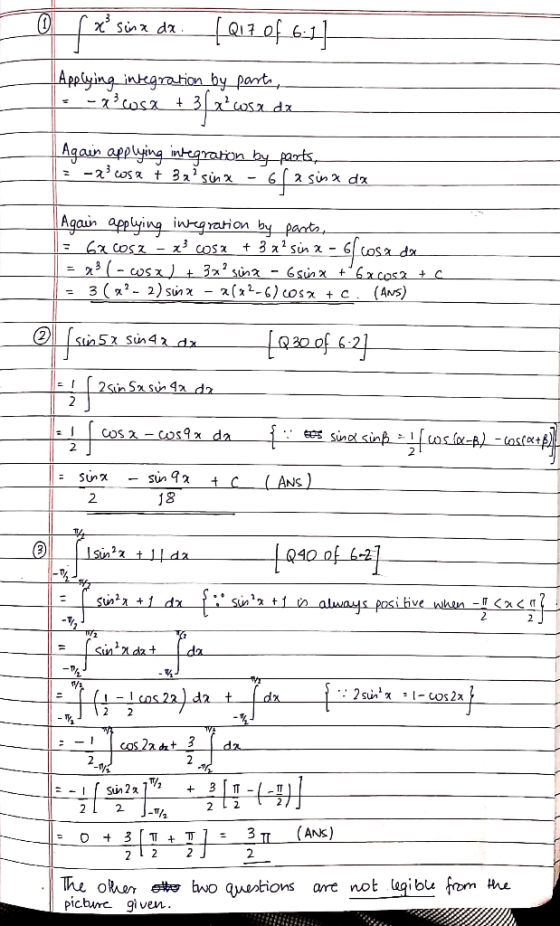 ① ∫ x³ sinx dx. [Q17 of 6.1]
Applying integration by parts,
= -x³cosx + 3∫x²cosx dx
Again applying integration by parts,
= -x³cosx + 3x²sinx - 6∫x sinx dx
Again applying integration by parts,
= 6x cosx - x³ cosx + 3x² sinx - 6∫cosx dx
= x³(-cosx) + 3x² sinx - 6sinx + 6xcosx + c
= 3(x²-2)sinx - x(x²-6)cosx + c. (ANS)
② ∫sin5x sin4x dx [Q30 of 6.2]
= 1/2 ∫ 2sin5x sin4x dx
= 1/2 ∫ cosx - cos9x dx {∵ sinα sinβ = 1/2 [cos(α-β) - cos(α+β)]
= sinx/2 - sin9x/18 + c (ANS)
③ ∫_{-π/2}^{π/2} |sin²x + 1| dx [Q40 of 6.2]
= ∫_{-π/2}^{π/2} sin²x + 1 dx {∵ sin²x + 1 is always positive when -π/2 < x < π/2}
= ∫_{-π/2}^{π/2} sin²x dx + ∫_{-π/2}^{π/2} dx
= ∫_{-π/2}^{π/2} (1/2 - 1/2 cos2x) dx + ∫_{-π/2}^{π/2} dx {∵ 2sin²x = 1-cos2x}
= -1/2 ∫_{-π/2}^{π/2} cos2x dx + 3/2 ∫_{-π/2}^{π/2} dx
= -1/2 [sin2x/2]_{-π/2}^{π/2} + 3/2 [π/2 - (-π/2)]
= 0 + 3/2 [π/2 + π/2] = 3π/2 (ANS)
The other two questions are not legible from the
picture given.